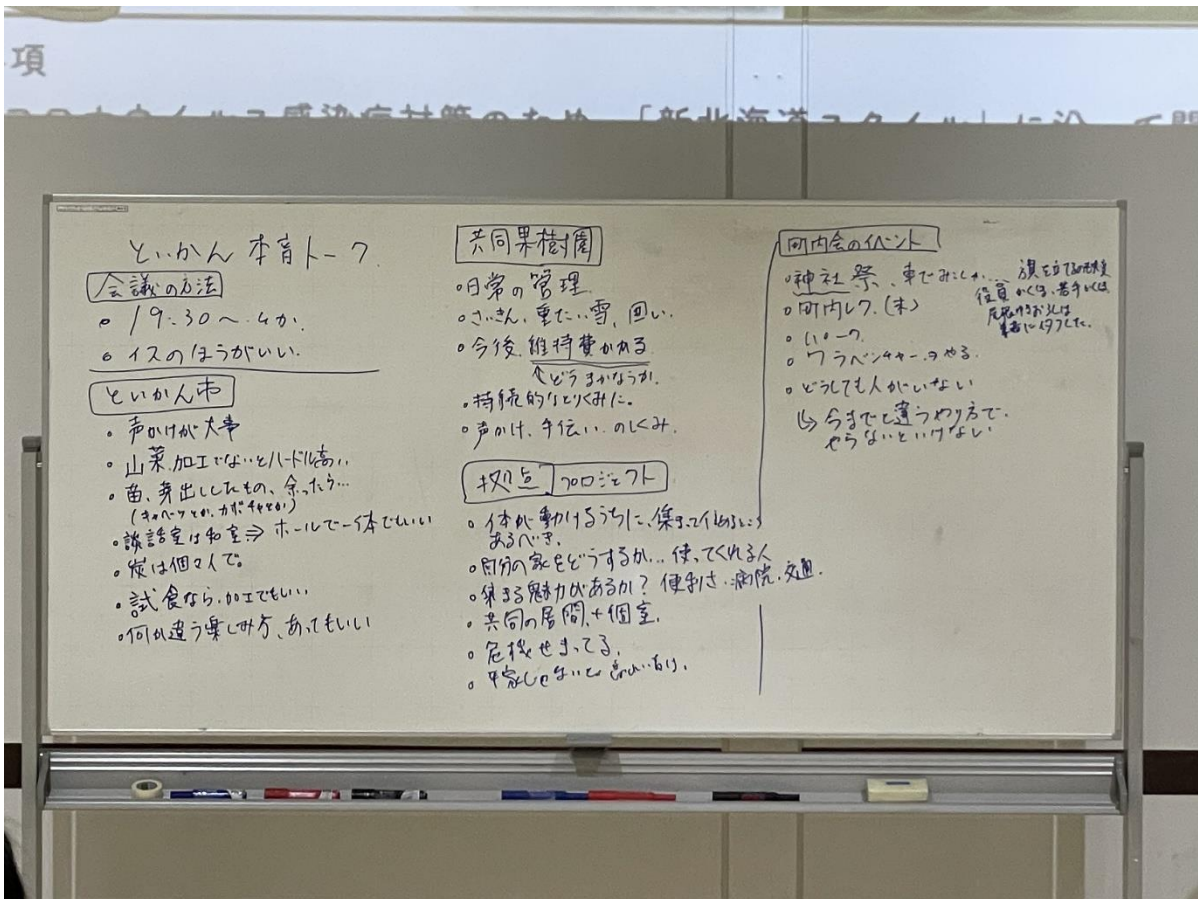 項
コロナウイルス感染症対策のため、「新北海道スタイル」に沿って開
といかん 本音トーク
会議の方法
・19:30〜 とか.
・イスのほうがいい.
といかん市
・声かけが大事
・山菜.加工でないとハードル高い.
・苗、芽出ししたもの、余ったら…
(キャベツとか、カボチャとか)
・談話室は和室⇒ ホールで一体でもいい
・炭は個々人で。
・試食なら.加工でもいい
・何か違う楽しみ方、あってもいい
共同果樹園
・日常の管理
・さいきん、重たい雪、固い.
・今後、維持費かかる
↑どうまかなうか.
・持続的なとりくみに。
・声かけ、手伝い、のしくみ.
拠点プロジェクト
・体が動けるうちに、集まって
あるべき.
・自分の家をどうするか… 使ってくれる人
・集まる魅力があるか? 便利さ.病院.交通.
・共同の居間+個室.
・危機せまってる.
・平家じゃないと
町内会のイベント
・神社祭、車で… 旗を立てるのも大変
役員 若手
・町内レク.(末)
・パーク
・ワラベンチャー やる.
・どうしても人がいない
↳ 今までと違うやり方で.
やらないといけない